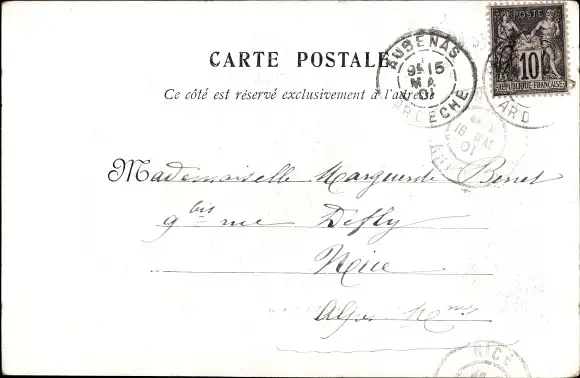 POSTE
10
RÉPUBLIQUE FRANÇAISE
AUBENAS
9E 15
MA
01
ARDECHE
ARD
CARTE POSTALE
Ce côté est réservé exclusivement à l'adresse
16 MAI
01
Mademoiselle Marguerite Benet
9 bis rue Defly
Nice
Alpes Mmes
NICE